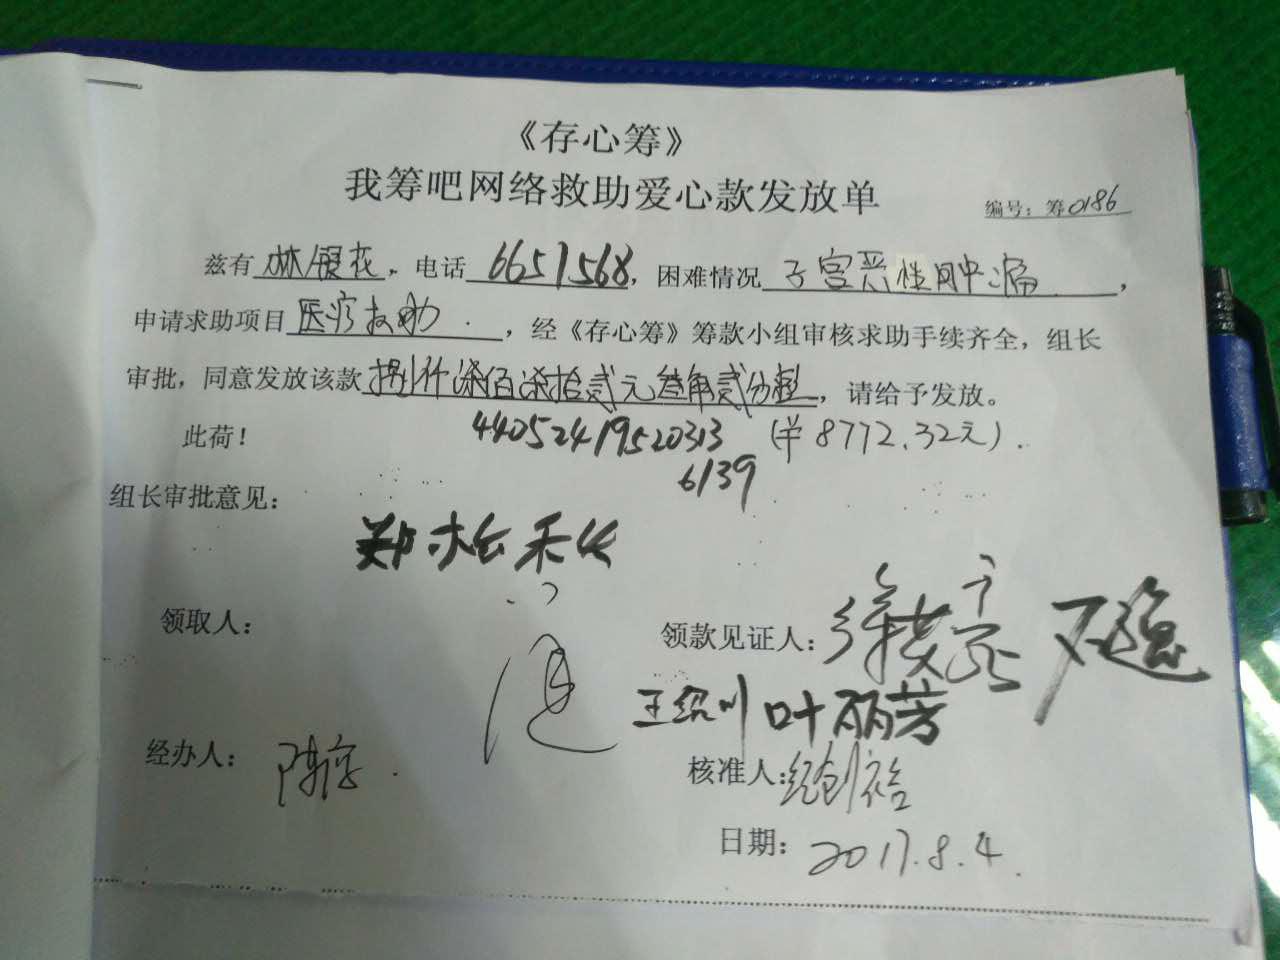 《存心筹》
我筹吧网络救助爱心款发放单
编号：筹0186
兹有林银花，电话6651568，困难情况子宫恶性肿瘤，
申请求助项目医疗救助.，经《存心筹》筹款小组审核求助手续齐全，组长
审批，同意发放该款捌仟柒佰柒拾贰元叁角贰分整，请给予发放。
此荷！ 44052419520313 (￥8772.32元).
6139
组长审批意见：
郑松禾
领取人：
领款见证人：
王绍川 叶丽芳
经办人：
核准人：
日期：2017.8.4.